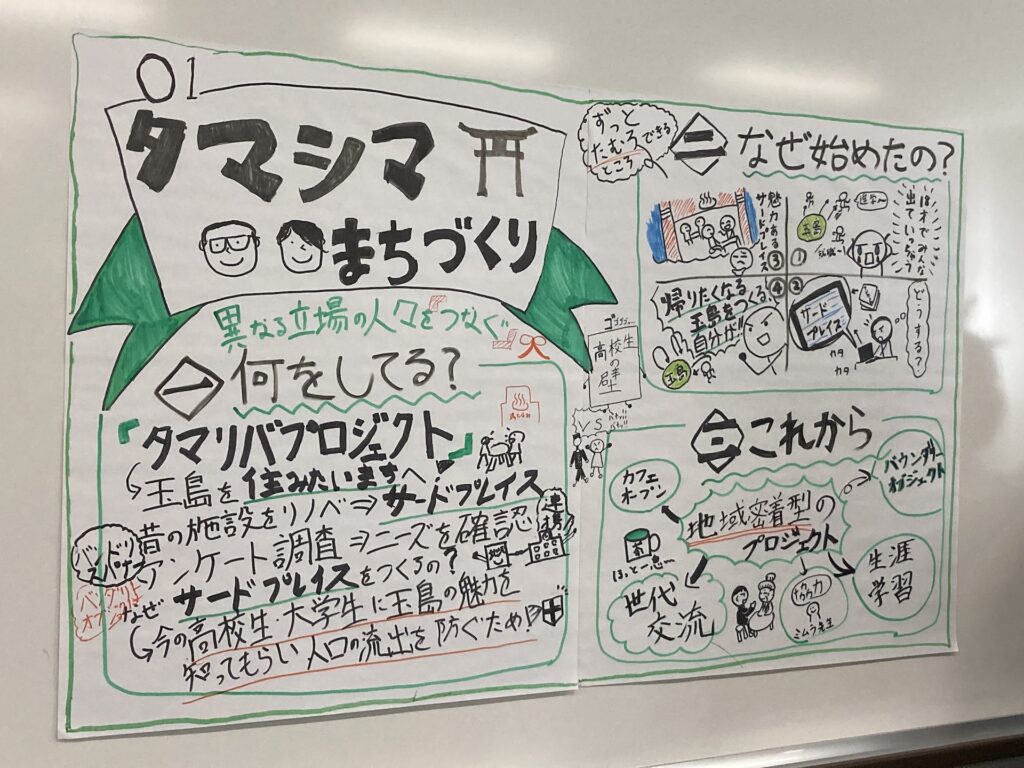 01
タマシマ
まちづくり
異なる立場の人々をつなぐ
一 何をしてる?
「タマリバプロジェクト」
玉島を住みたいまちへ!
昔の施設をリノベ⇒サードプレイス
アンケート調査⇒ニーズを確認
なぜサードプレイスをつくるの?
今の高校生・大学生に玉島の魅力を
知ってもらい人口の流出を防ぐため!
ずっと
たむろできる
ところ
二 なぜ始めたの?
①
はオでみんな
出ていっちゃう
進学へ
玉島
就職へ
②
どうする?
サード
プレイス
カタ
カタ
③
魅力ある
サードプレイス
④
帰りたくなる
玉島をつくる、
自分が!!
玉島
ゴゴゴゴ
高校生
の壁
VS
三 これから
地域密着型の
プロジェクト
カフェ
オープン
ほっと一息
世代
交流
協力
ミムラ先生
生涯
学習
バウンダリー
オブジェクト